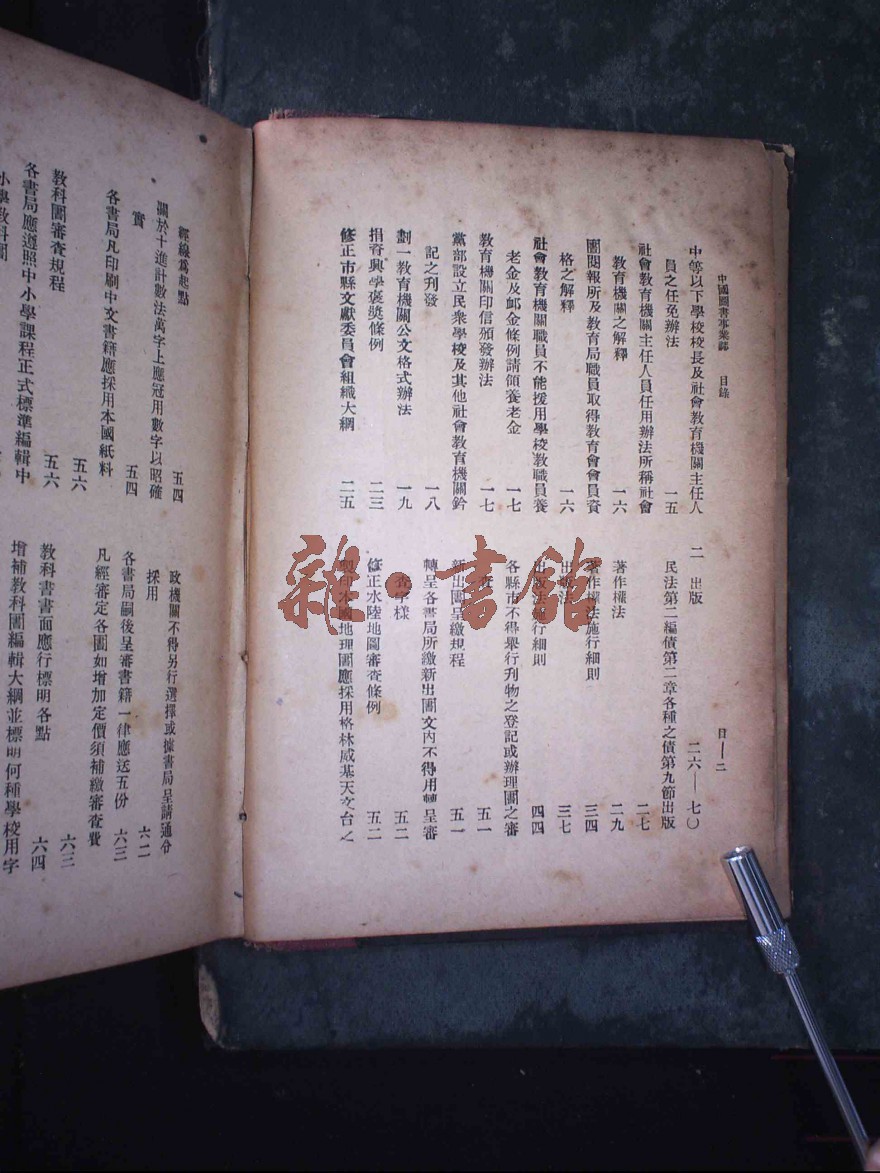 中國圖書事業誌　目錄
目—二
中等以下學校校長及社會教育機關主任人
員之任免辦法　一五
社會教育機關主任人員任用辦法所稱社會
教育機關之解釋　一六
圕閱報所及教育局職員取得教育會會員資
格之解釋　一六
社會教育機關職員不能援用學校教職員養
老金及卹金條例請領養老金　一七
教育機關印信頒發辦法　一七
黨部設立民衆學校及其他社會教育機關鈐
記之刋發　一八
劃一教育機關公文格式辦法　一九
捐資興學褒獎條例　二三
修正市縣文獻委員會組織大綱　二五
二　出版　二六—七〇
民法第二編債第二章各種之債第九節出版　二七
著作權法　二九
著作權法施行細則　三四
出版法　三七
出版法施行細則　四四
各縣市不得舉行刋物之登記或辦理圕之審
查　五一
新出圖呈繳規程　五一
轉呈各書局所繳新出圕文內不得用轉呈審
查字樣　五二
修正水陸地圖審查條例　五二
製印本國地理圖應採用格林威基天文台之
經線爲起點　五四
關於十進計數法萬字上應冠用數字以昭確
實　五四
各書局凡印刷中文書籍應採用本國紙料　五六
教科圖審查規程　五六
各書局應遵照中小學課程正式標準編輯中
小學教科圖
政機關不得另行選擇或據書局呈請通令
採用　六二
各書局嗣後呈審書籍一律應送五份　六三
凡經審定各圖如增加定價須補繳審查費　六三
教科書書面應行標明各點　六四
增補教科圖編輯大綱並標明何種學校用字
雜·書館